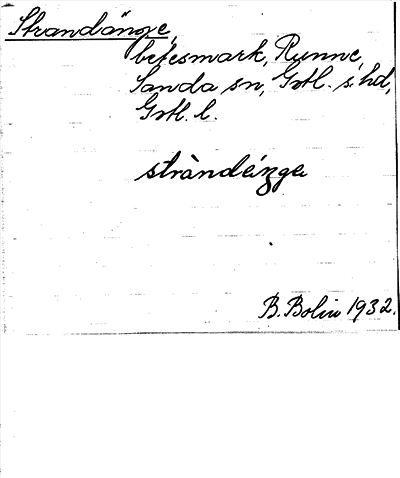 Strandänge,
betesmark, Runne,
Sanda sn, Gotl. s. hd,
Gotl. l.
stràndéngε
B. Bolin 1932.